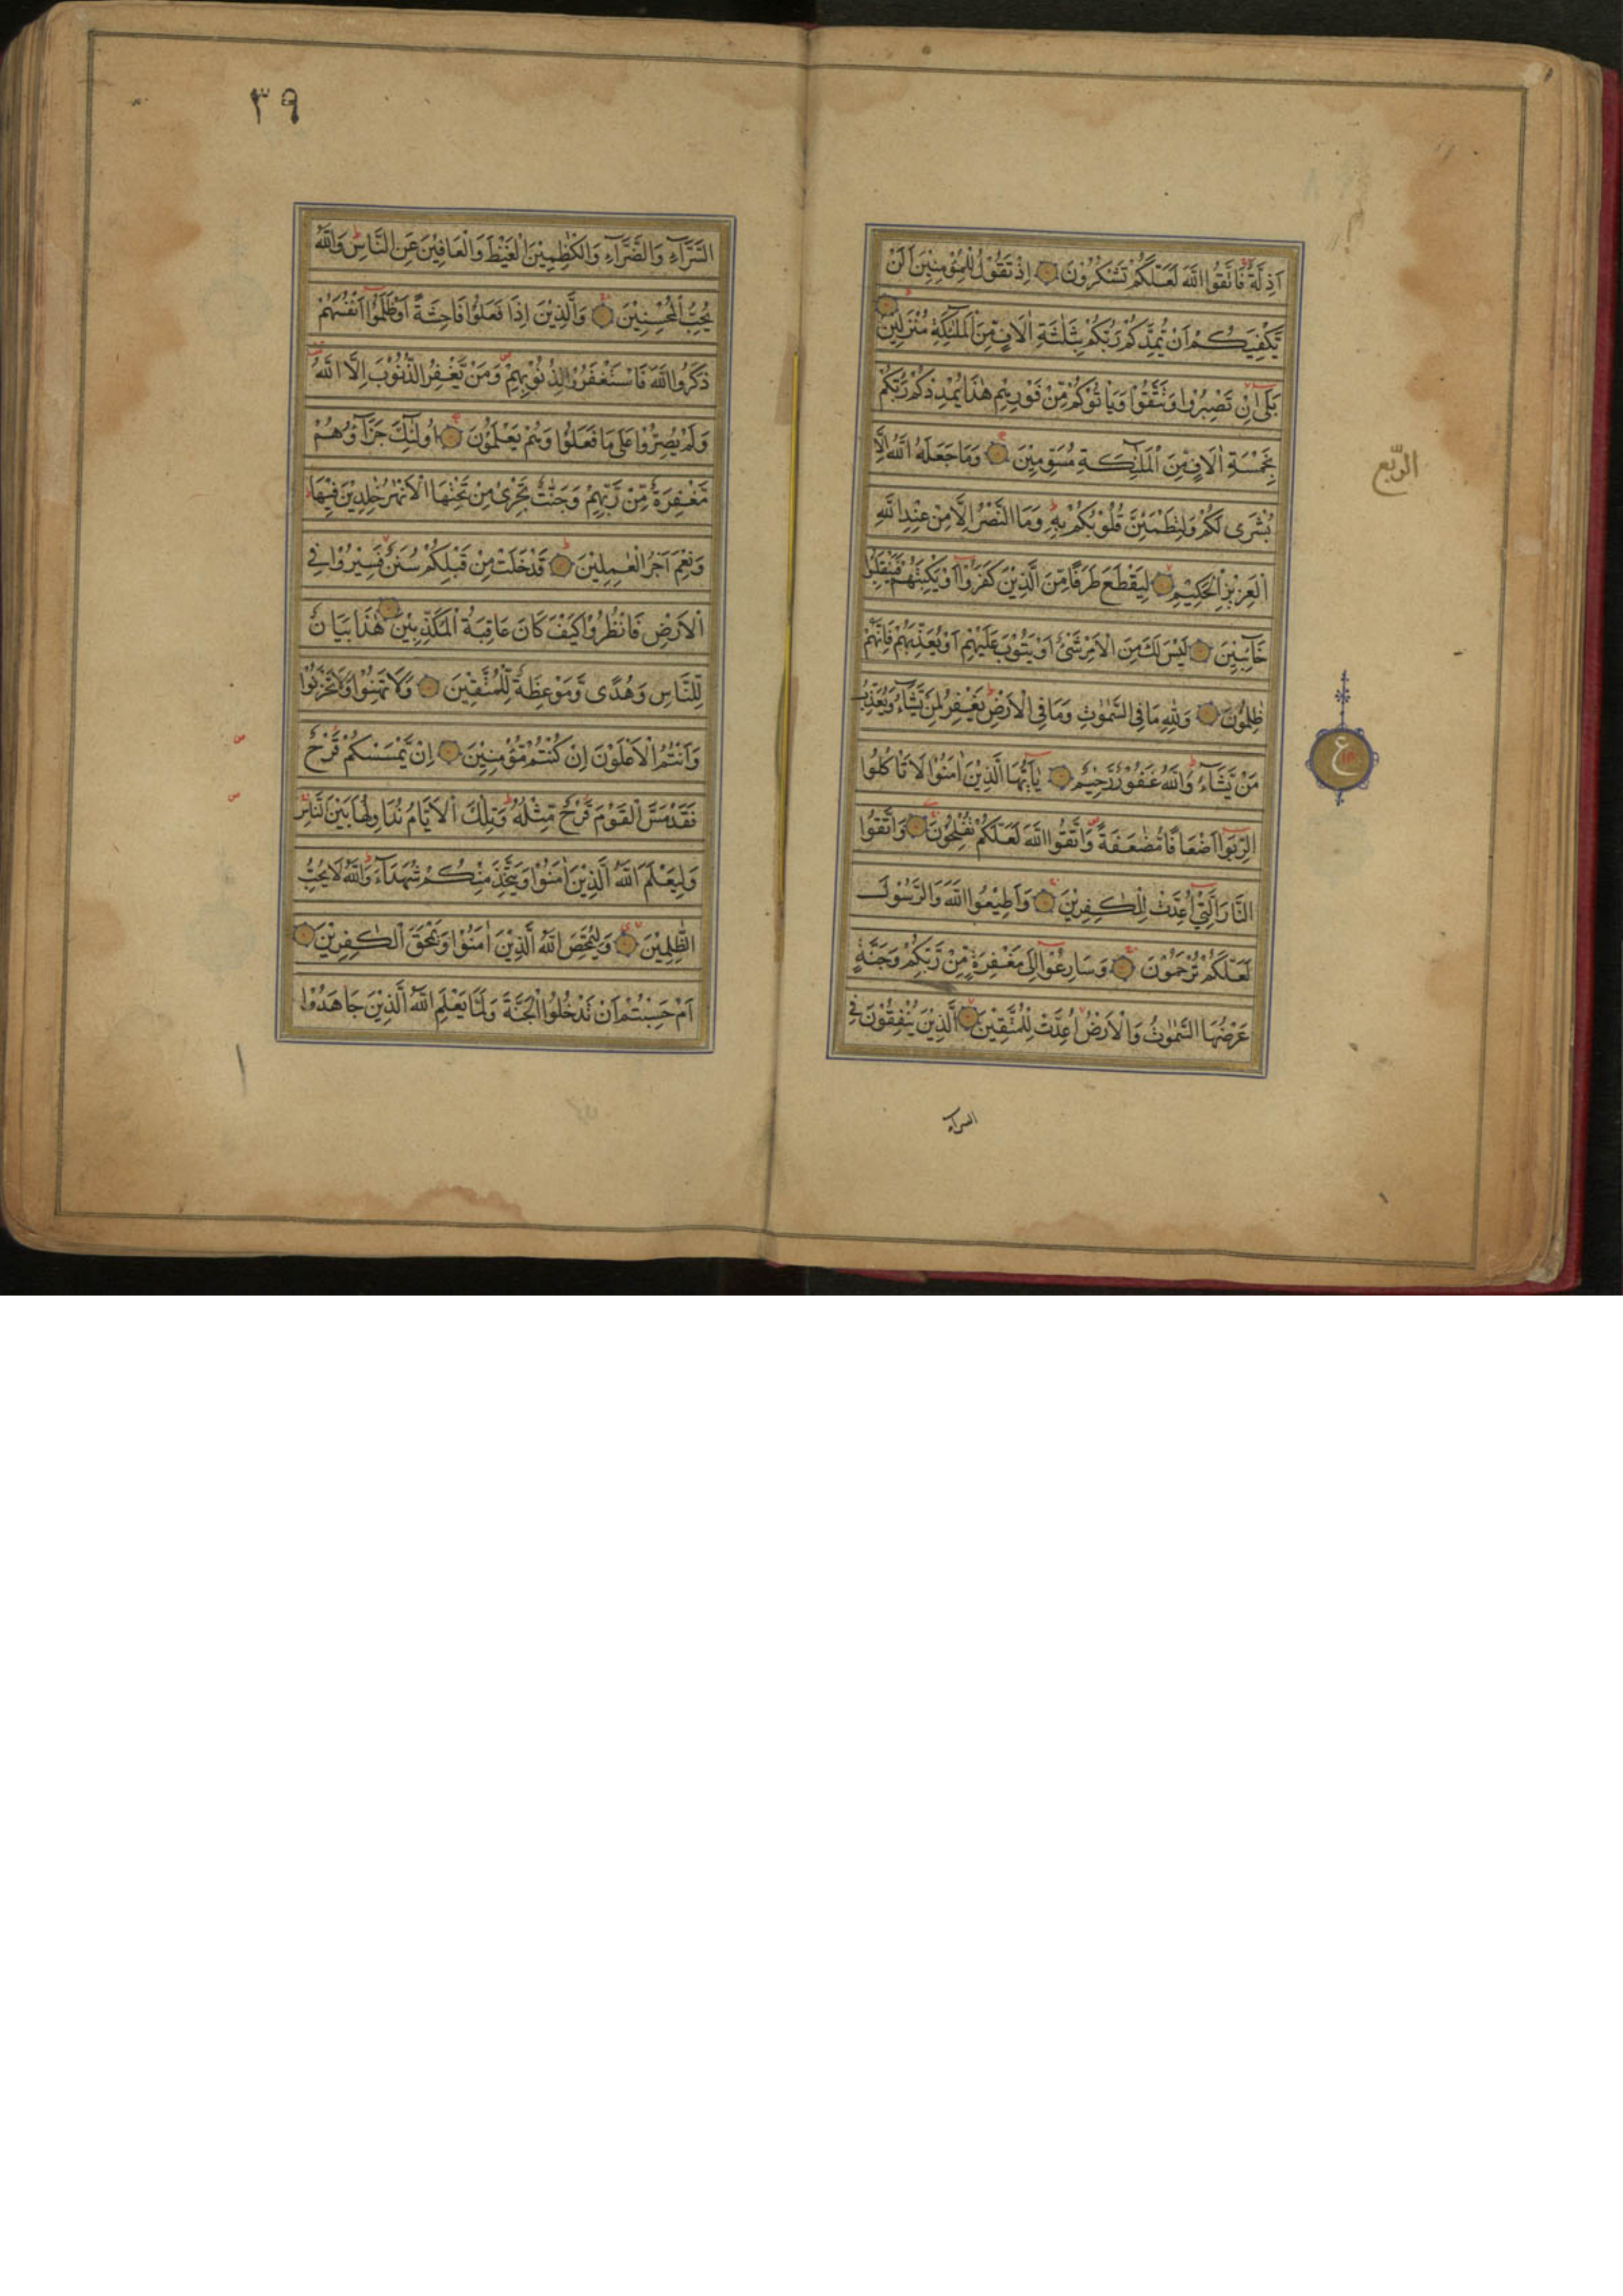 اَذِلَّةٌ فَاتَّقُوا اللّٰهَ لَعَلَّكُمْ تَشْكُرُوْنَ اِذْ تَقُوْلُ لِلْمُؤْمِنِيْنَ اَلَنْ
يَّكْفِيَكُمْ اَنْ يُّمِدَّكُمْ رَبُّكُمْ بِثَلٰثَةِ اٰلَافٍ مِّنَ الْمَلٰٓئِكَةِ مُنْزَلِيْنَ
بَلٰى اِنْ تَصْبِرُوْا وَتَتَّقُوْا وَيَاْتُوْكُمْ مِّنْ فَوْرِهِمْ هٰذَا يُمْدِدْكُمْ رَبُّكُمْ
بِخَمْسَةِ اٰلَافٍ مِّنَ الْمَلٰٓئِكَةِ مُسَوِّمِيْنَ وَمَا جَعَلَهُ اللّٰهُ اِلَّا
بُشْرٰى لَكُمْ وَلِتَطْمَئِنَّ قُلُوْبُكُمْ بِهٖ وَمَا النَّصْرُ اِلَّا مِنْ عِنْدِ اللّٰهِ
الْعَزِيْزِ الْحَكِيْمِ لِيَقْطَعَ طَرَفًا مِّنَ الَّذِيْنَ كَفَرُوْٓا اَوْ يَكْبِتَهُمْ فَيَنْقَلِبُوْا
خَآئِبِيْنَ لَيْسَ لَكَ مِنَ الْاَمْرِ شَيْءٌ اَوْ يَتُوْبَ عَلَيْهِمْ اَوْ يُعَذِّبَهُمْ فَاِنَّهُمْ
ظٰلِمُوْنَ وَلِلّٰهِ مَا فِي السَّمٰوٰتِ وَمَا فِي الْاَرْضِ يَغْفِرُ لِمَنْ يَّشَآءُ وَيُعَذِّبُ
مَنْ يَّشَآءُ وَاللّٰهُ غَفُوْرٌ رَّحِيْمٌ يٰٓاَيُّهَا الَّذِيْنَ اٰمَنُوْا لَا تَاْكُلُوا
الرِّبٰوٓا اَضْعَافًا مُّضٰعَفَةً وَّاتَّقُوا اللّٰهَ لَعَلَّكُمْ تُفْلِحُوْنَ وَاتَّقُوا
النَّارَ الَّتِيْٓ اُعِدَّتْ لِلْكٰفِرِيْنَ وَاَطِيْعُوا اللّٰهَ وَالرَّسُوْلَ
لَعَلَّكُمْ تُرْحَمُوْنَ وَسَارِعُوْٓا اِلٰى مَغْفِرَةٍ مِّنْ رَّبِّكُمْ وَجَنَّةٍ
عَرْضُهَا السَّمٰوٰتُ وَالْاَرْضُ اُعِدَّتْ لِلْمُتَّقِيْنَ الَّذِيْنَ يُنْفِقُوْنَ فِي
السراء
الرّبع
ع
٣٩
السَّرَّآءِ وَالضَّرَّآءِ وَالْكٰظِمِيْنَ الْغَيْظَ وَالْعَافِيْنَ عَنِ النَّاسِ وَاللّٰهُ
يُحِبُّ الْمُحْسِنِيْنَ وَالَّذِيْنَ اِذَا فَعَلُوْا فَاحِشَةً اَوْ ظَلَمُوْٓا اَنْفُسَهُمْ
ذَكَرُوا اللّٰهَ فَاسْتَغْفَرُوْا لِذُنُوْبِهِمْ وَمَنْ يَّغْفِرُ الذُّنُوْبَ اِلَّا اللّٰهُ
وَلَمْ يُصِرُّوْا عَلٰى مَا فَعَلُوْا وَهُمْ يَعْلَمُوْنَ اُولٰٓئِكَ جَزَآؤُهُمْ
مَّغْفِرَةٌ مِّنْ رَّبِّهِمْ وَجَنّٰتٌ تَجْرِيْ مِنْ تَحْتِهَا الْاَنْهٰرُ خٰلِدِيْنَ فِيْهَا
وَنِعْمَ اَجْرُ الْعٰمِلِيْنَ قَدْ خَلَتْ مِنْ قَبْلِكُمْ سُنَنٌ فَسِيْرُوْا فِي
الْاَرْضِ فَانْظُرُوْا كَيْفَ كَانَ عَاقِبَةُ الْمُكَذِّبِيْنَ هٰذَا بَيَانٌ
لِّلنَّاسِ وَهُدًى وَّمَوْعِظَةٌ لِّلْمُتَّقِيْنَ وَلَا تَهِنُوْا وَلَا تَحْزَنُوْا
وَاَنْتُمُ الْاَعْلَوْنَ اِنْ كُنْتُمْ مُّؤْمِنِيْنَ اِنْ يَّمْسَسْكُمْ قَرْحٌ
فَقَدْ مَسَّ الْقَوْمَ قَرْحٌ مِّثْلُهٗ وَتِلْكَ الْاَيَّامُ نُدَاوِلُهَا بَيْنَ النَّاسِ
وَلِيَعْلَمَ اللّٰهُ الَّذِيْنَ اٰمَنُوْا وَيَتَّخِذَ مِنْكُمْ شُهَدَآءَ وَاللّٰهُ لَا يُحِبُّ
الظّٰلِمِيْنَ وَلِيُمَحِّصَ اللّٰهُ الَّذِيْنَ اٰمَنُوْا وَيَمْحَقَ الْكٰفِرِيْنَ
اَمْ حَسِبْتُمْ اَنْ تَدْخُلُوا الْجَنَّةَ وَلَمَّا يَعْلَمِ اللّٰهُ الَّذِيْنَ جَاهَدُوْا